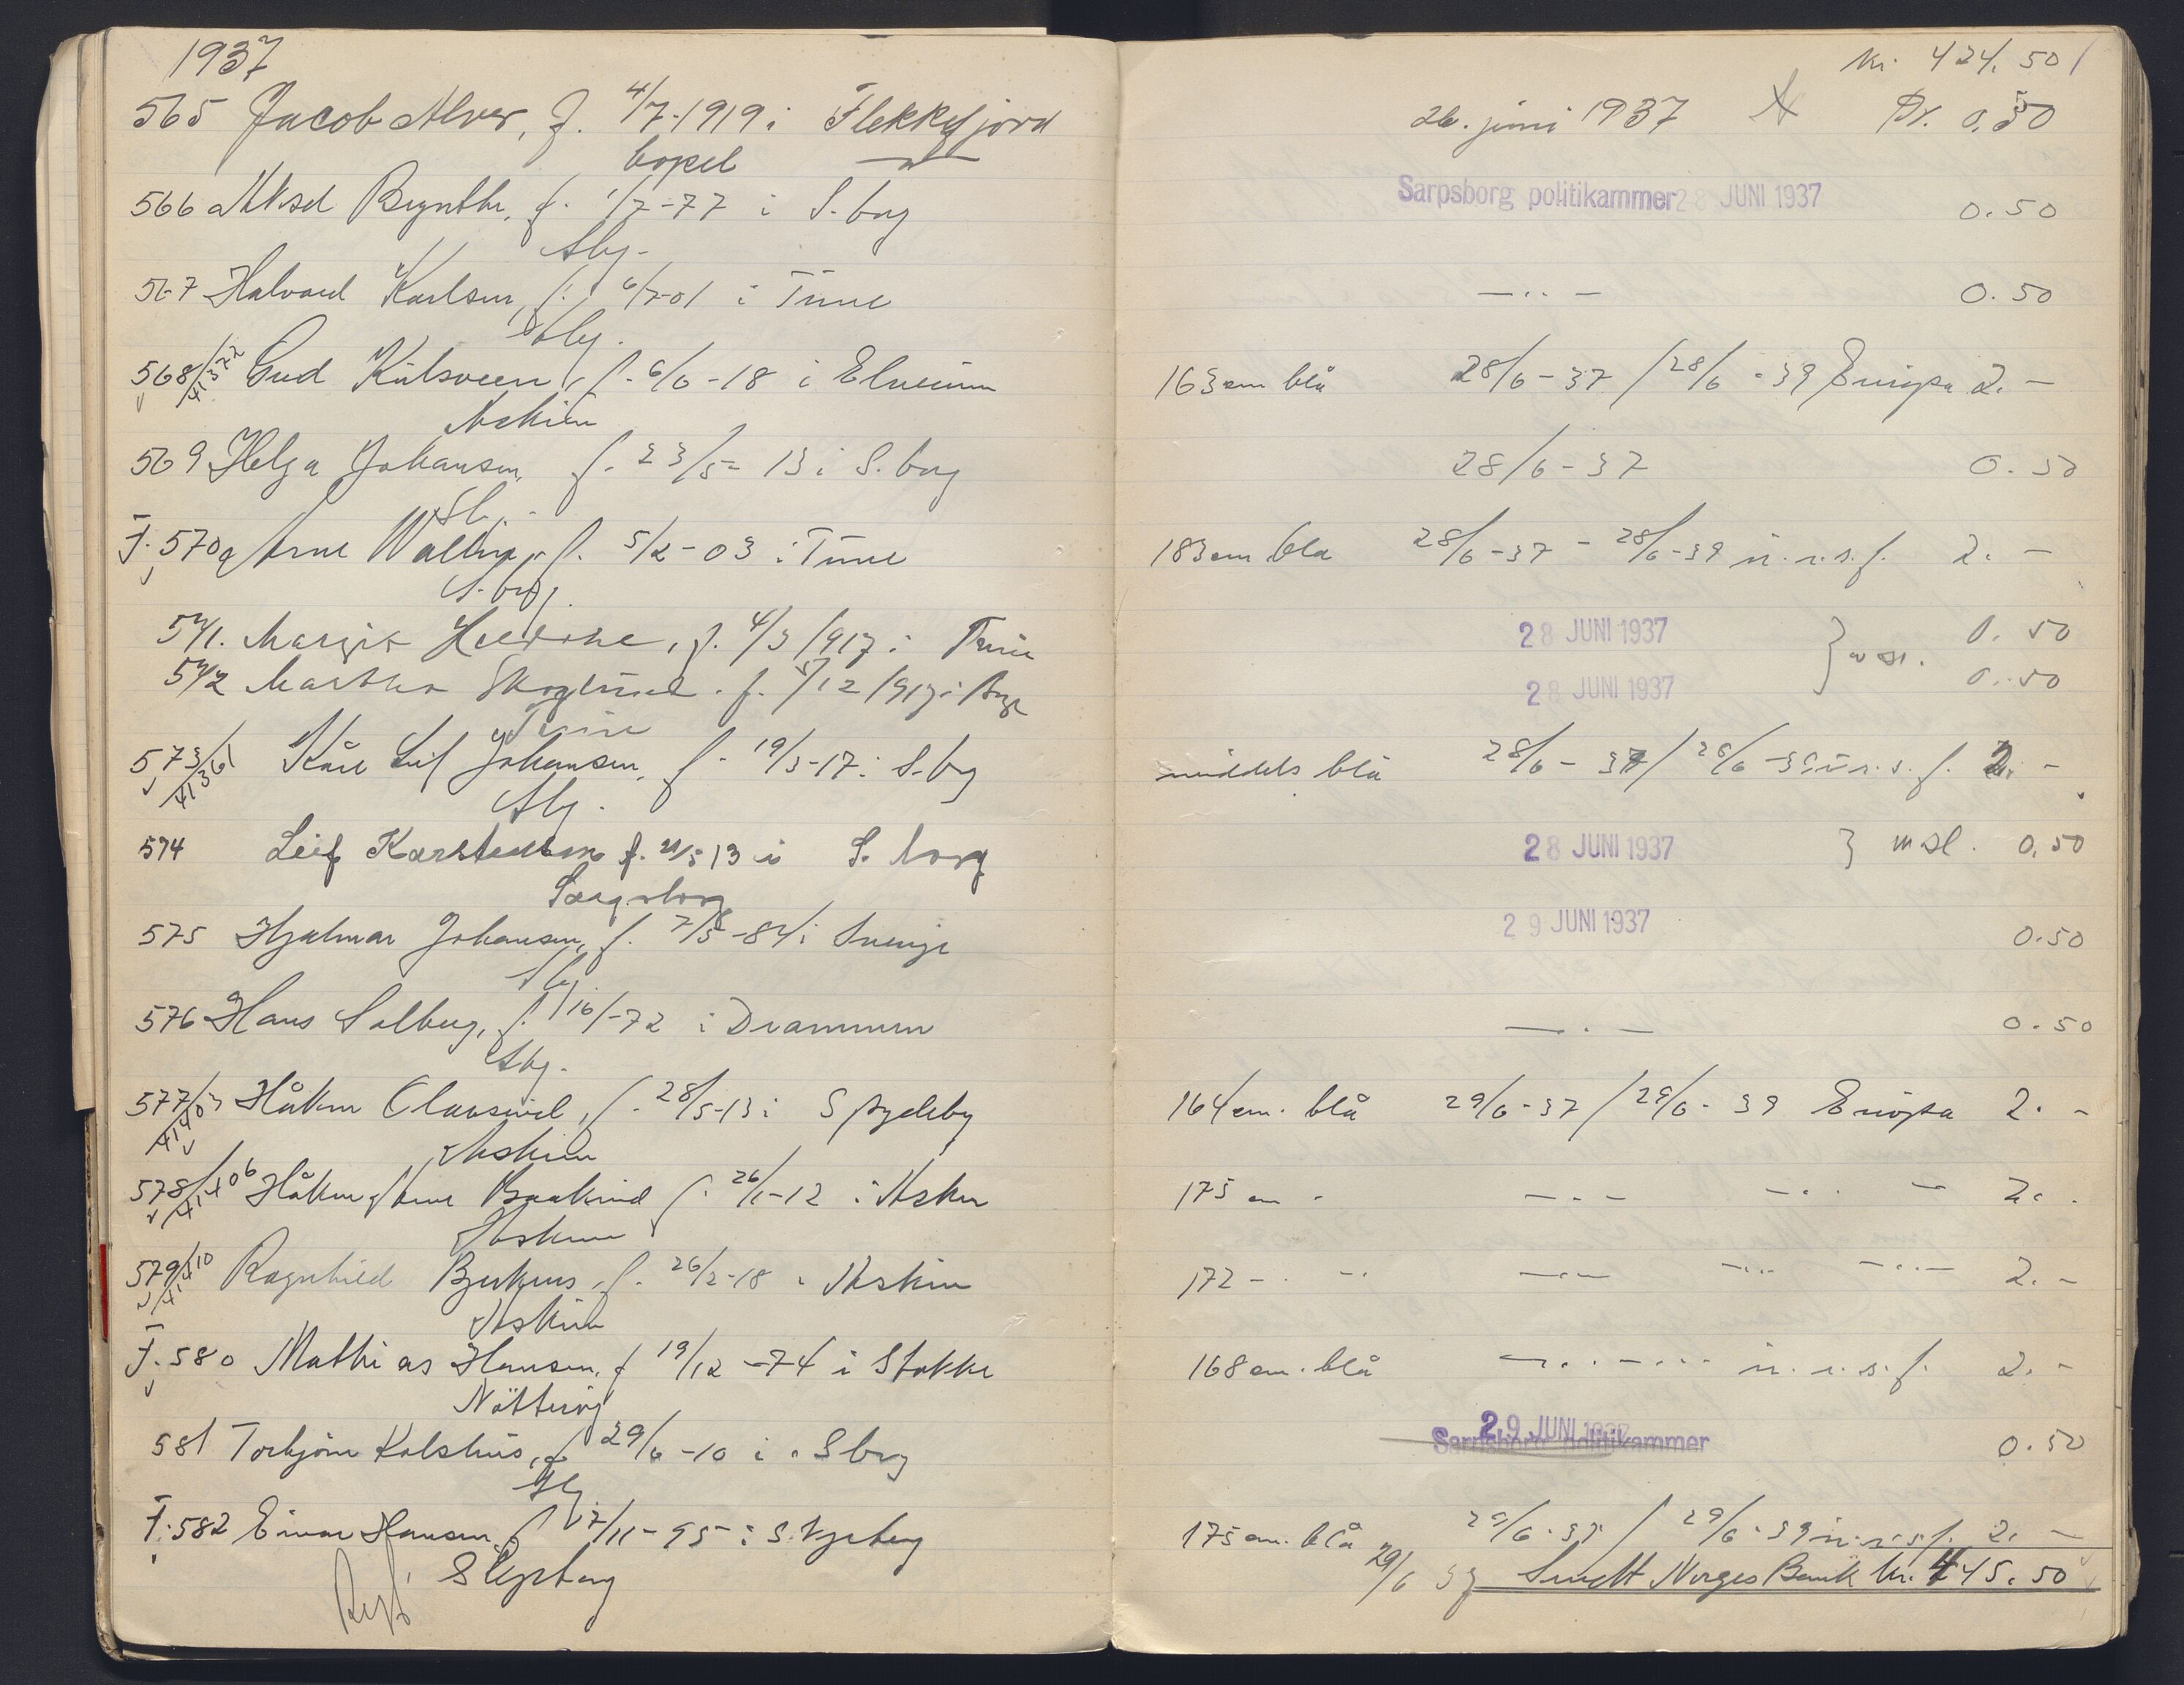 1937
565 Jacob Alver, f. 4/7-1919 i Flekkefjord
bopel
566 Aksel f. 1/7-77 i S.borg
Sbg.
567 Halvard Karlsen, f. 6/7-01 i Tune
Sbg.
568/41322 Gud Kulsveen, f. 6/6-18 i Elverum
Askim
569 Helga Johansen, f. 23/5-13 i S.borg
Sb.
F. 570 Arne f. 5/2-03 i Tune
S.borg.
571. Margit f. 4/3 1917 i Tune
572 Martha Skoglund. f. 5/12 1917 i
Tune
573/41361 Kåre Leif Johansen, f. 19/3-17 i S.bg
Sbg.
574 Leif Karstensen f. 21/5 13 i S.borg
Sarpsborg
575 Hjalmar Johansen, f. 7/5-84 i Sverige
Sbg.
576 Hans Solberg, f. 16/-72 i Drammen
Sbg.
577/41403 Håkon Olavsrud, f. 28/5-13 i Spydeby
Askim
578/41406 Håkon Arne f. 26/1-12 i Askim
Askim
579/41410 Ragnhild f. 26/2-18 i Askim
Askim
F. 580 Mathias Hansen, f 19/12-74 i Stokke
Nötteröy
581 Torbjörn Kolshus, f 29/6-10 i Sbrg
Sbg
F. 582 Einar Hansen, f 17/11-95 i Skjeberg
Skjeberg
kr. 424.50
26. juni 1937 Pr. 0.50
Sarpsborg politikammer 28 JUNI 1937 0.50
—..— 0.50
163 cm blå 28/6-37 / 28/6-39 Europa 2.—
28/6-37 0.50
183 cm. blå 28/6-37 - 28/6-39 u.r.s.f. 2.—
28 JUNI 1937 0.50
28 JUNI 1937 } msl. 0.50
middels blå 28/6-37 / 28/6-39 u.r.s.f. 2.-
28 JUNI 1937 } msl. 0,50
29 JUNI 1937 0.50
—.— 0.50
164 cm. blå 29/6-37 / 29/6-39 Europa 2.-
175 cm - —.— —..— 2.-
172 - - —..— —..— —..— 2.-
168 cm. blå —..—... u.r.s.f. 2.-
29 JUNI 1937 Sarpsborg politikammer 0.50
175 cm. blå 29/6-37 / 29/6-39 u.r.s.f. 2.—
29/6 37 Sendt Norges Bank kr. 445.50